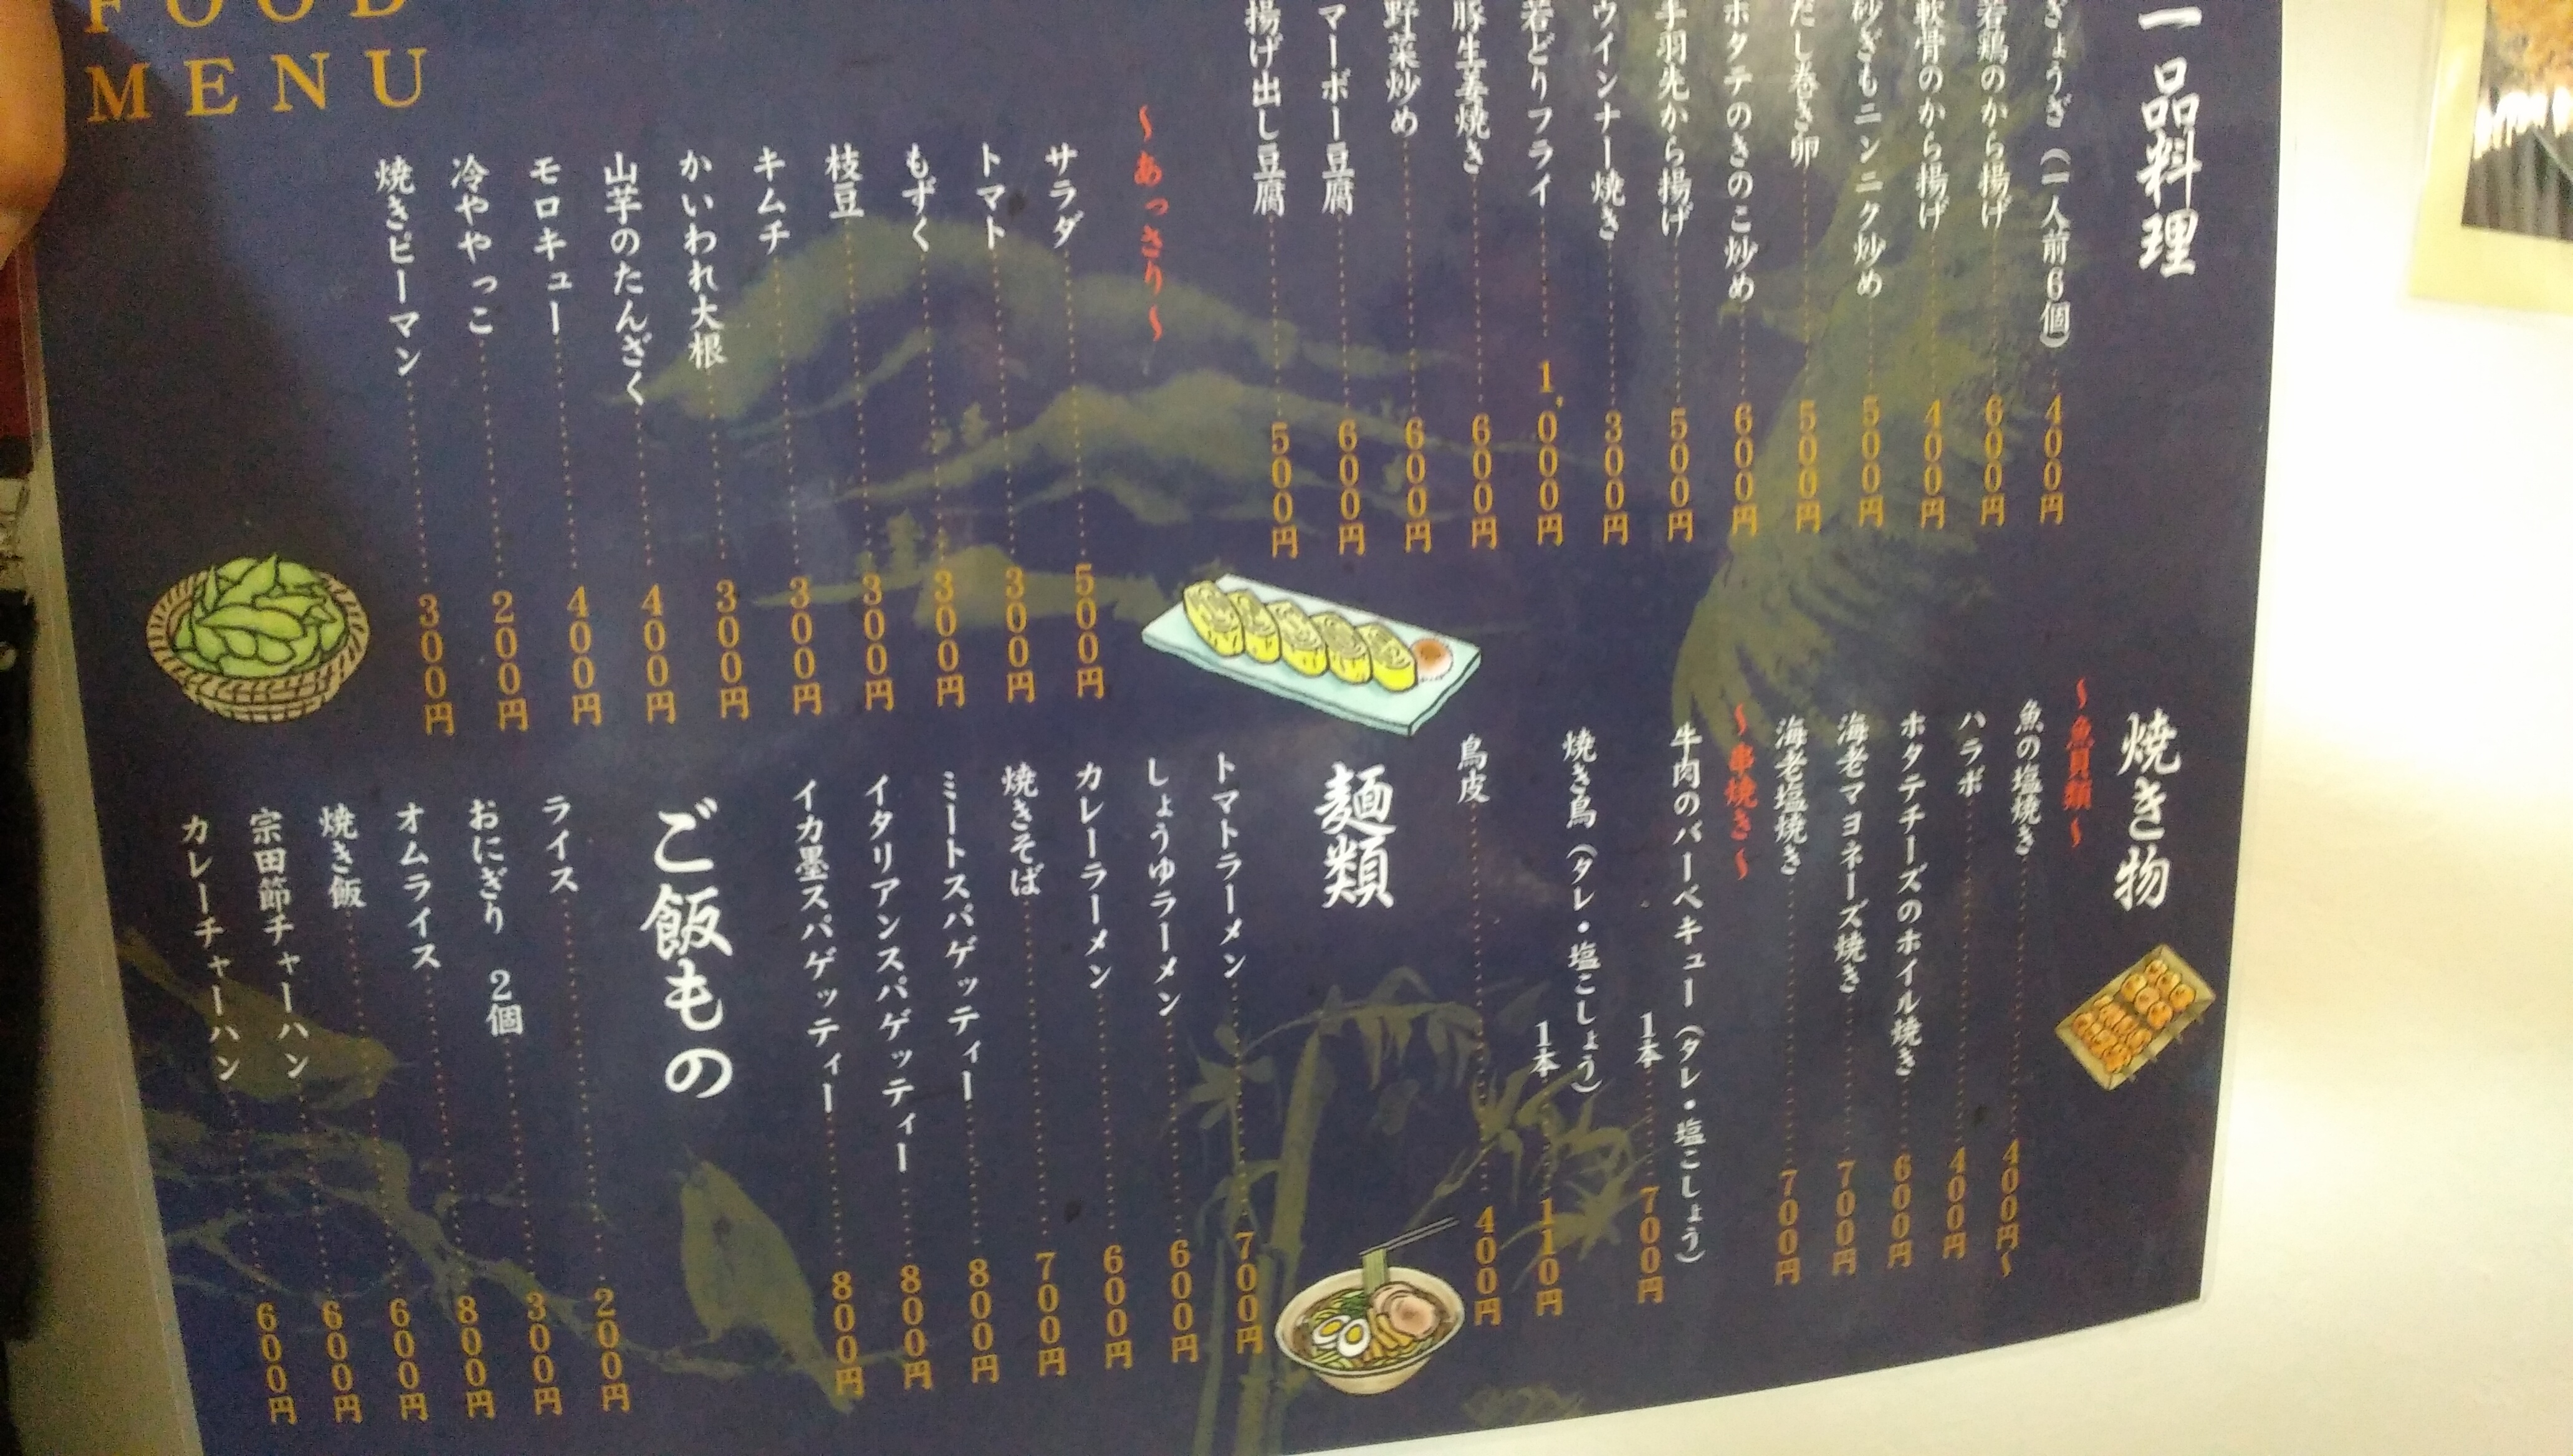 FOOD
MENU
一品料理
ぎょうざ（一人前6個） 400円
若鶏のから揚げ 600円
軟骨のから揚げ 400円
砂ぎもニンニク炒め 500円
だし巻き卵 500円
ホタテのきのこ炒め 600円
手羽先から揚げ 500円
ウインナー焼き 300円
若どりフライ 1,000円
豚生姜焼き 600円
野菜炒め 600円
マーボー豆腐 600円
揚げ出し豆腐 500円
〜あっさり〜
サラダ 500円
トマト 300円
もずく 300円
枝豆 300円
キムチ 300円
かいわれ大根 300円
山芋のたんざく 400円
モロキュー 400円
冷ややっこ 200円
焼きピーマン 300円
焼き物
〜魚貝類〜
魚の塩焼き 400円〜
ハラボ 400円
ホタテチーズのホイル焼き 600円
海老マヨネーズ焼き 700円
海老塩焼き 700円
〜串焼き〜
牛肉のバーベキュー（タレ・塩こしょう）
1本 700円
焼き鳥（タレ・塩こしょう）
1本 110円
鳥皮 400円
麺類
トマトラーメン 700円
しょうゆラーメン 600円
カレーラーメン 600円
焼きそば 700円
ミートスパゲッティー 800円
イタリアンスパゲッティー 800円
イカ墨スパゲッティー 800円
ご飯もの
ライス 200円
おにぎり 2個 300円
オムライス 800円
焼き飯 600円
宗田節チャーハン 600円
カレーチャーハン 600円